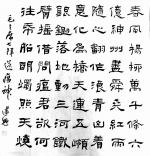 春風楊柳萬千條六
億神州盡舜堯紅雨
隨心翻作浪青山着
意化為橋天連五嶺
銀鋤落地動三河鐵
臂搖借問瘟君欲何
往紙船明燭照天燒
毛主席七律送瘟神